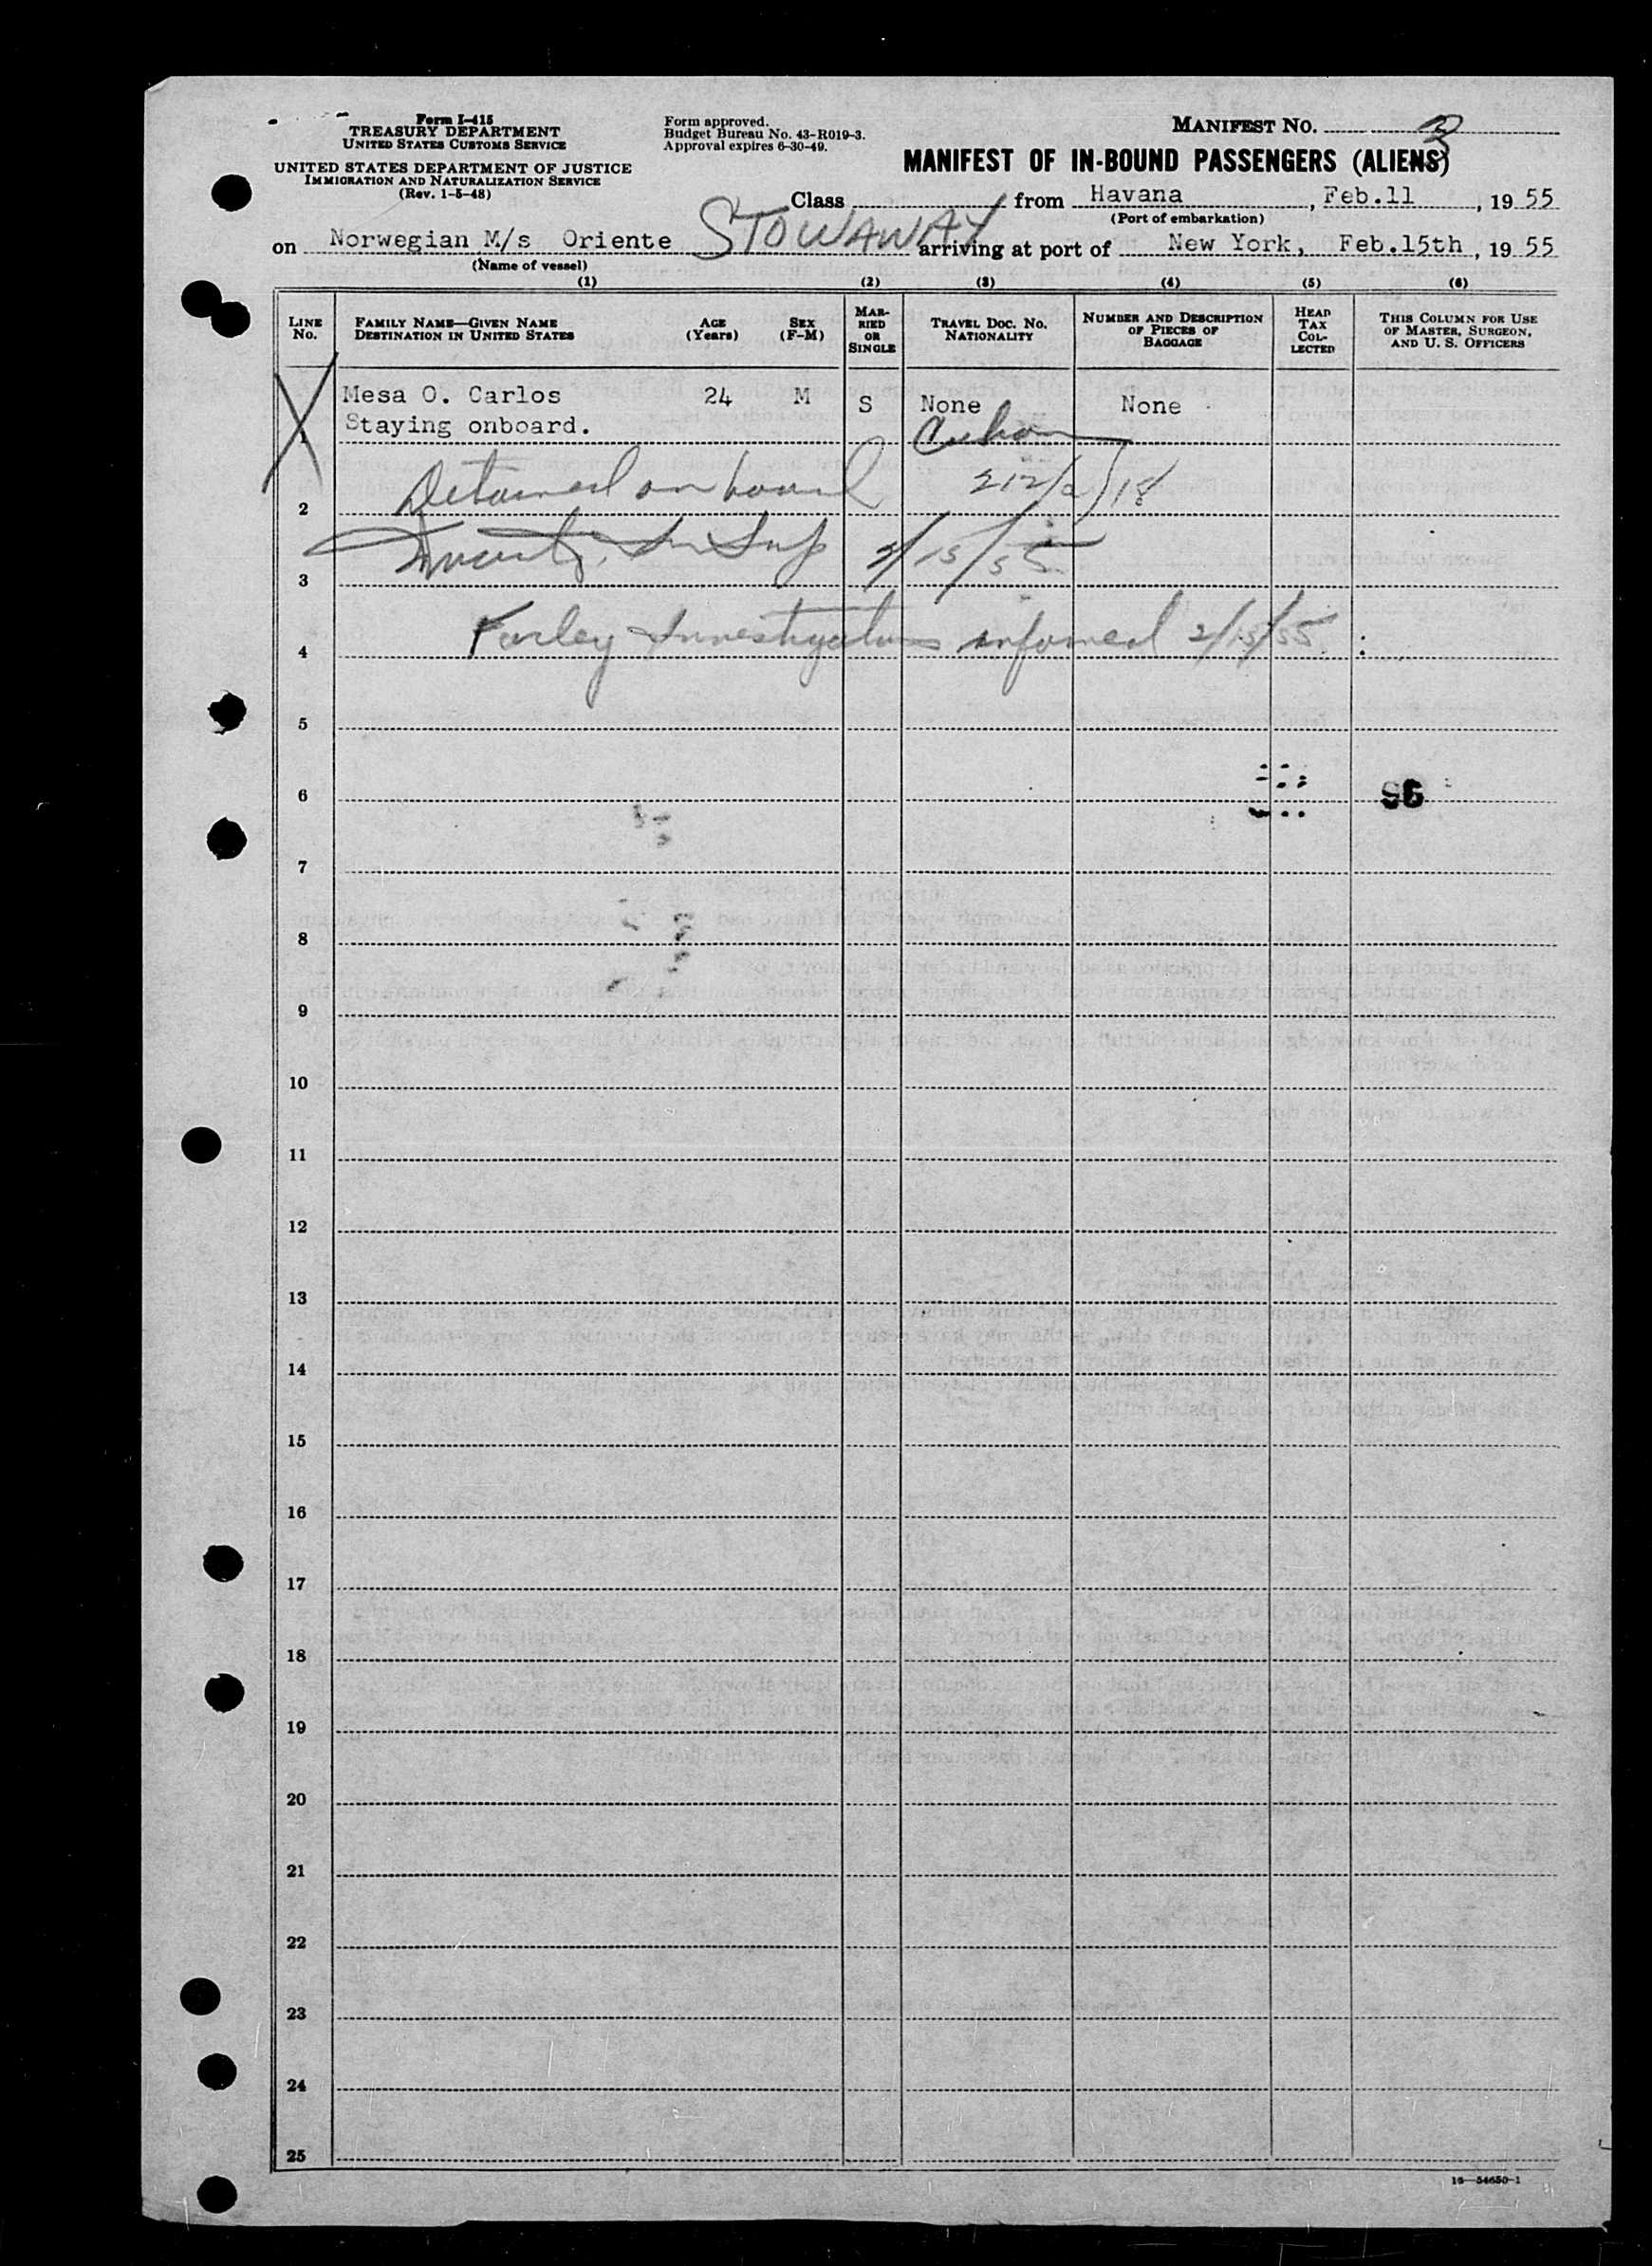 Form I-415
TREASURY DEPARTMENT
UNITED STATES CUSTOMS SERVICE
UNITED STATES DEPARTMENT OF JUSTICE
IMMIGRATION AND NATURALIZATION SERVICE
(Rev. 1-5-48)
Form approved.
Budget Bureau No. 43-R019-3.
Approval expires 6-30-49.
MANIFEST NO. 3
MANIFEST OF IN-BOUND PASSENGERS (ALIENS)
Class from Havana, Feb.11, 1955
(Port of embarkation)
STOWAWAY
on Norwegian M/s Oriente arriving at port of New York, Feb.15th, 1955
(Name of vessel)
(1) (2) (3) (4) (5) (6)
LINE NO.
FAMILY NAME—GIVEN NAME
DESTINATION IN UNITED STATES
AGE (Years)
SEX (F-M)
MARRIED OR SINGLE
TRAVEL DOC. NO.
NATIONALITY
NUMBER AND DESCRIPTION OF PIECES OF BAGGAGE
HEAD TAX COLLECTED
THIS COLUMN FOR USE OF MASTER, SURGEON, AND U. S. OFFICERS
Mesa O. Carlos 24 M S None None
1 Staying onboard. Cuban
2 Detained on board 212/a)18
3 2/15/55
4 Farley Investigations informed 2/15/55
5
6 96
7
8
9
10
11
12
13
14
15
16
17
18
19
20
21
22
23
24
25
16—54650-1